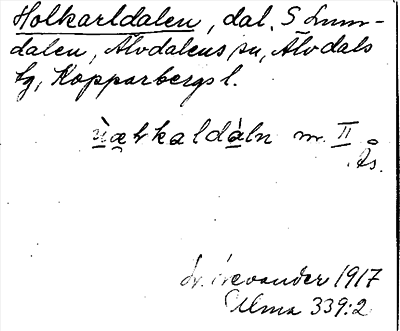 Holkarldalen, dal. S Lunn-
dalen, Älvdalens sn, Älvdals
tg, Kopparbergs l.
ùætkaldàln m. II
Ås.
Levander 1917
Ulma 339:2